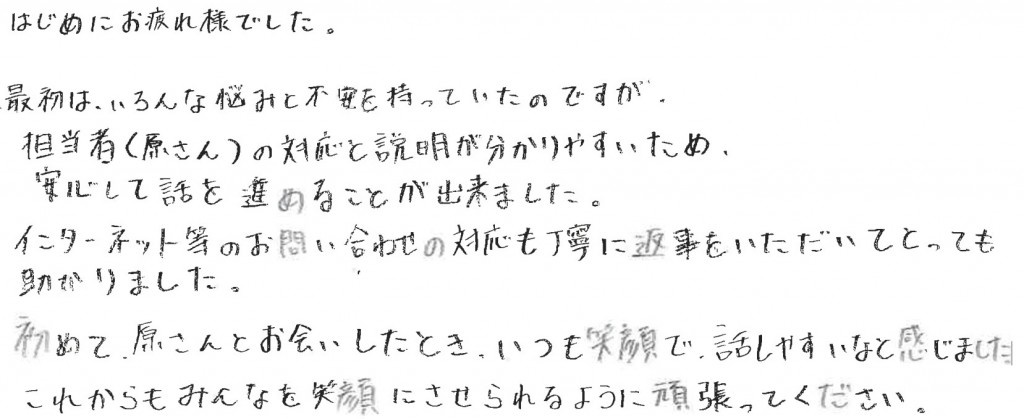 はじめにお疲れ様でした。
最初は、いろんな悩みと不安を持っていたのですが、
担当者(原さん)の対応と説明が分かりやすいため、
安心して話を進めることが出来ました。
インターネット等のお問い合わせの対応も丁寧に返事をいただいてとっても
助かりました。
初めて、原さんとお会いしたとき、いつも笑顔で、話しやすいなと感じました
これからもみんなを笑顔にさせられるように頑張ってください。